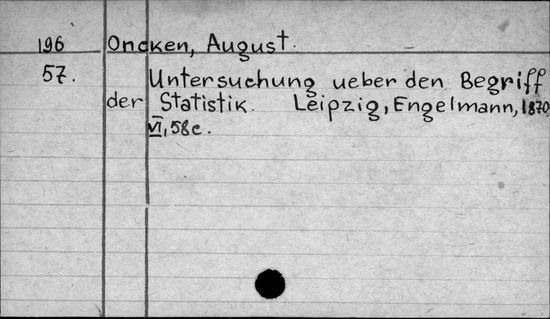 196 Oncken, August.
57. Untersuchung ueber den Begriff
der Statistik. Leipzig, Engelmann, 1870
VI, 58c.